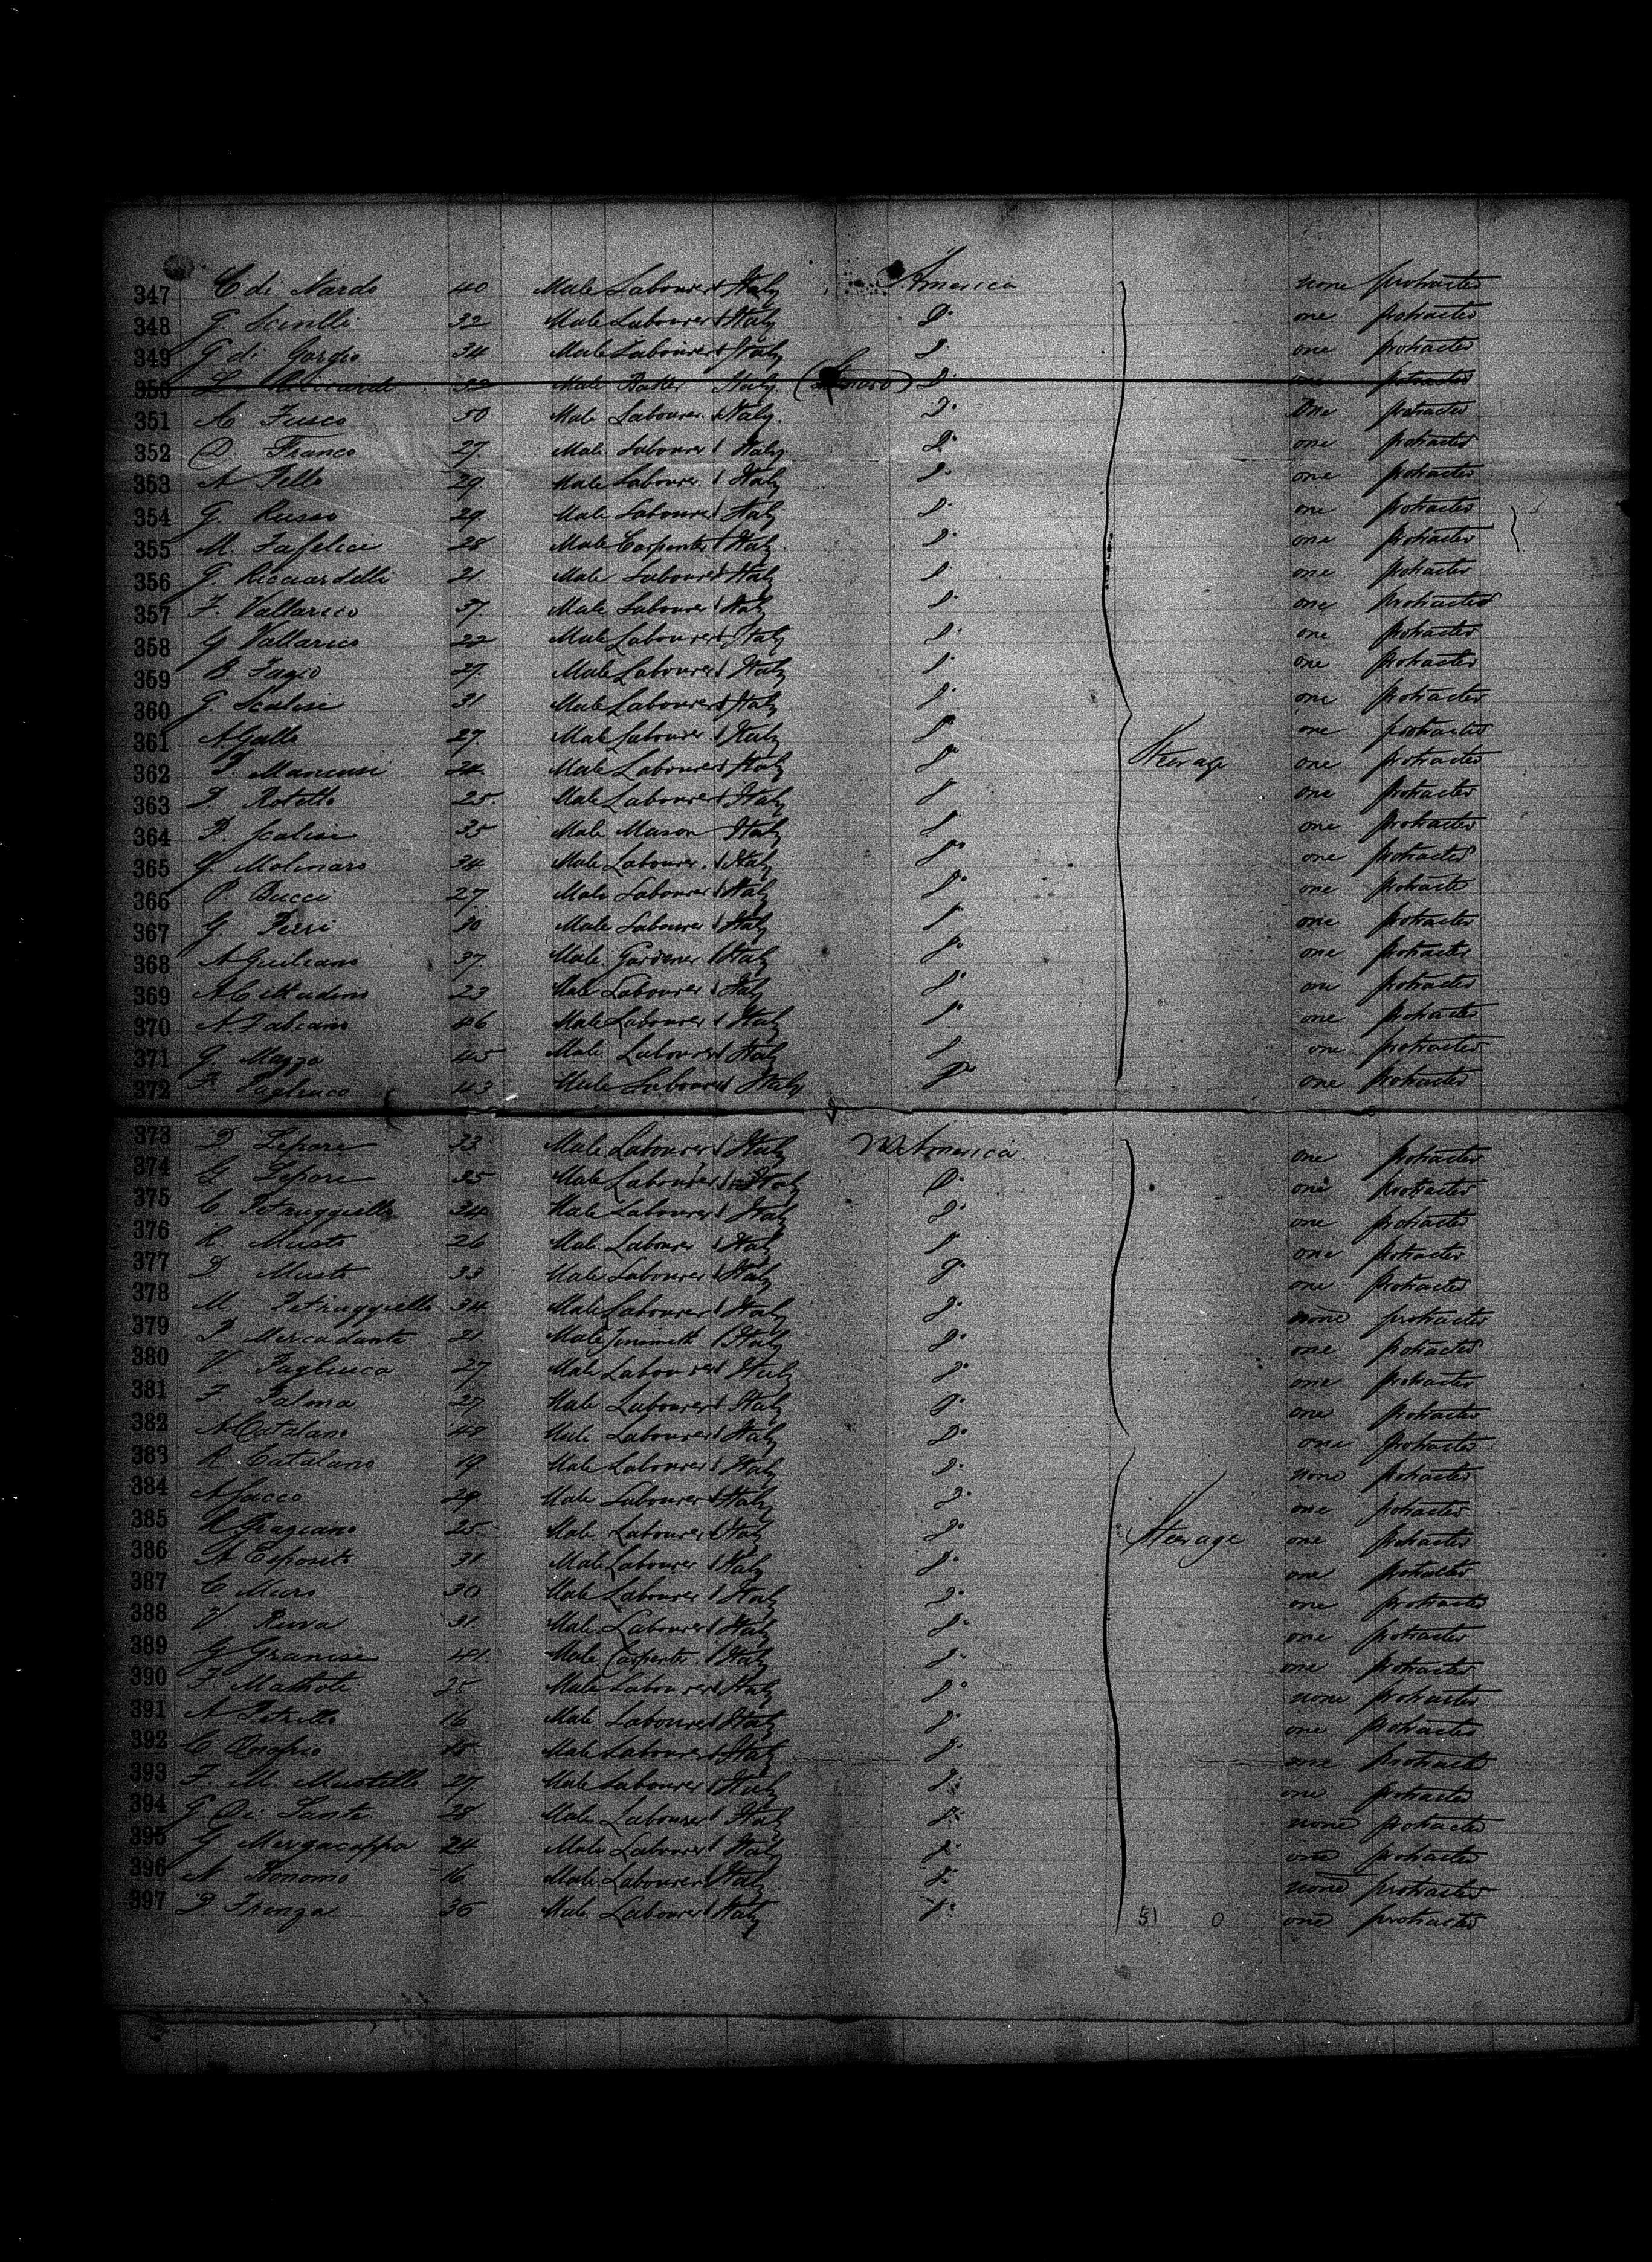 347 C di Nardo 40 Male Labourer Italy America none protracted
348 G. Scirilli 32 Male Labourer Italy Do one protracted
349 G di Gorgio 34 Male Labourer Italy Do one protracted
350 L. 32 Male Italy Do one protracted
351 A Fusco 50 Male Labourer Italy Do One protracted
352 D. Franco 27 Male Labourer Italy Do one protracted
353 A Pello 29 Male Labourer Italy Do one protracted
354 G. Russo 29 Male Labourer Italy Do one protracted
355 M. Fafelice 28 Male Carpenter Italy Do one protracted
356 G. Ricciardelli 21 Male Labourer Italy Do one protracted
357 F. Vallarico 37 Male Labourer Italy Do one protracted
358 G Vallarico 22 Male Labourer Italy Do one protracted
359 B. Fagio 27 Male Labourer Italy Do one protracted
360 G. Scalise 31 Male Labourer Italy Do one protracted
361 A. Gallo 27 Male Labourer Italy Do one protracted
362 24 Male Labourer Italy Do Steerage one protracted
363 Rotello 25 Male Labourer Italy Do one protracted
364 Scalise 35 Male Mason Italy Do one protracted
365 G. Molinaro 34 Male Labourer Italy Do one protracted
366 P. Bucci 27 Male Labourer Italy Do one protracted
367 G. Perri 30 Male Labourer Italy Do one protracted
368 A Giuliano 37 Male Gardener Italy Do one protracted
369 A Cittadino 23 Male Labourer Italy Do one protracted
370 A Fabiano 46 Male Labourer Italy Do one protracted
371 G. Mazza 45 Male Labourer Italy Do one protracted
372 F. Pagliuco 43 Male Labourer Italy Do one protracted
373 D Lepore 33 Male Labourer Italy America one protracted
374 G Lepore 35 Male Labourer Italy Do one protracted
375 C Petruzziello 34 Male Labourer Italy Do one protracted
376 R. Musto 26 Male Labourer Italy Do one protracted
377 D Musto 33 Male Labourer Italy Do one protracted
378 M. Petruzziello 34 Male Labourer Italy Do none protracted
379 Mercadante 21 Male Italy Do one protracted
380 V Pagliuca 27 Male Labourer Italy Do one protracted
381 F. Palma 27 Male Labourer Italy Do one protracted
382 A Catalano 48 Male Labourer Italy Do one protracted
383 R Catalano 19 Male Labourer Italy Do none protracted
384 A Sacco 29 Male Labourer Italy Do one protracted
385 R Graziano 25 Male Labourer Italy Do Steerage one protracted
386 A Esposito 31 Male Labourer Italy Do one protracted
387 C Muro 30 Male Labourer Italy Do one protracted
388 V 31 Male Labourer Italy Do one protracted
389 G Granese 41 Male Carpenter Italy Do one protracted
390 F. 25 Male Labourer Italy Do none protracted
391 A Petrillo 16 Male Labourer Italy Do one protracted
392 C Onofrio Male Labourer Italy Do one protracted
393 F. M. Mustillo 27 Male Labourer Italy Do one protracted
394 G. Di Santo 28 Male Labourer Italy Do none protracted
395 G. Mergacappa 24 Male Labourer Italy Do one protracted
396 N. Bonomo 16 Male Labourer Italy Do none protracted
397 Frenza 36 Male Labourer Italy Do 51 0 one protracted